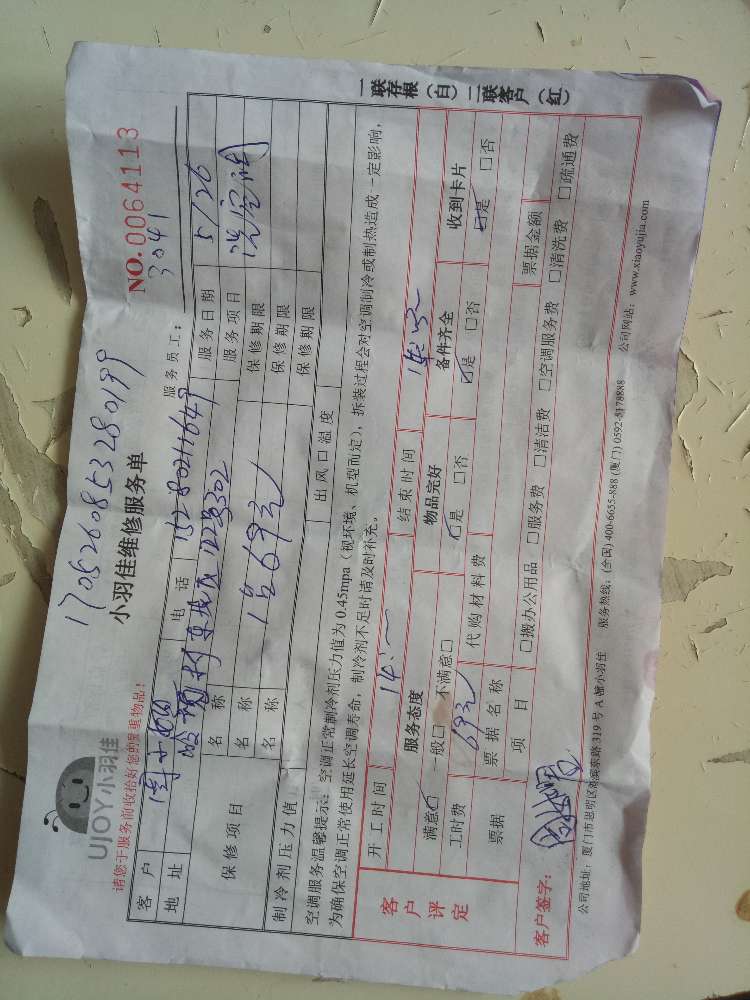 1705260853280199
UJOY小羽佳
小羽佳维修服务单
NO.0064113
请您于服务前收拾好您的贵重物品!
服务员工: 3041
客户 周小姐 电话 15280211649 服务日期 5/26
地址 12号302 服务项目 洗空调
保修项目 名称 保修期限
名称 1台69元 保修期限
名称 保修期限
制冷剂压力值 出风口温度
空调服务温馨提示:空调正常制冷剂压力值为0.45mpa(视环境、机型而定),拆装过程会对空调制冷或制热造成一定影响,
为确保空调正常使用延长空调寿命,制冷剂不足时请及时补充。
客户评定
开工时间 结束时间
服务态度 物品完好 备件齐全 收到卡片
满意☑ 一般□ 不满意□ ☑是 □否 ☑是 □否 ☑是 □否
工时费 69元 代购材料费
票据 票据名称 票据金额
项目 □搬办公用品 □服务费 □清洁费 □空调服务费 □清洗费 □疏通费
客户签字:
公司地址:厦门市思明区湖滨东路319号A幢小羽佳 服务热线:(全国)400-6655-888(厦门)0592-5178888 公司网站:www.xiaoyujia.com
一联存根(白)二联客户(红)